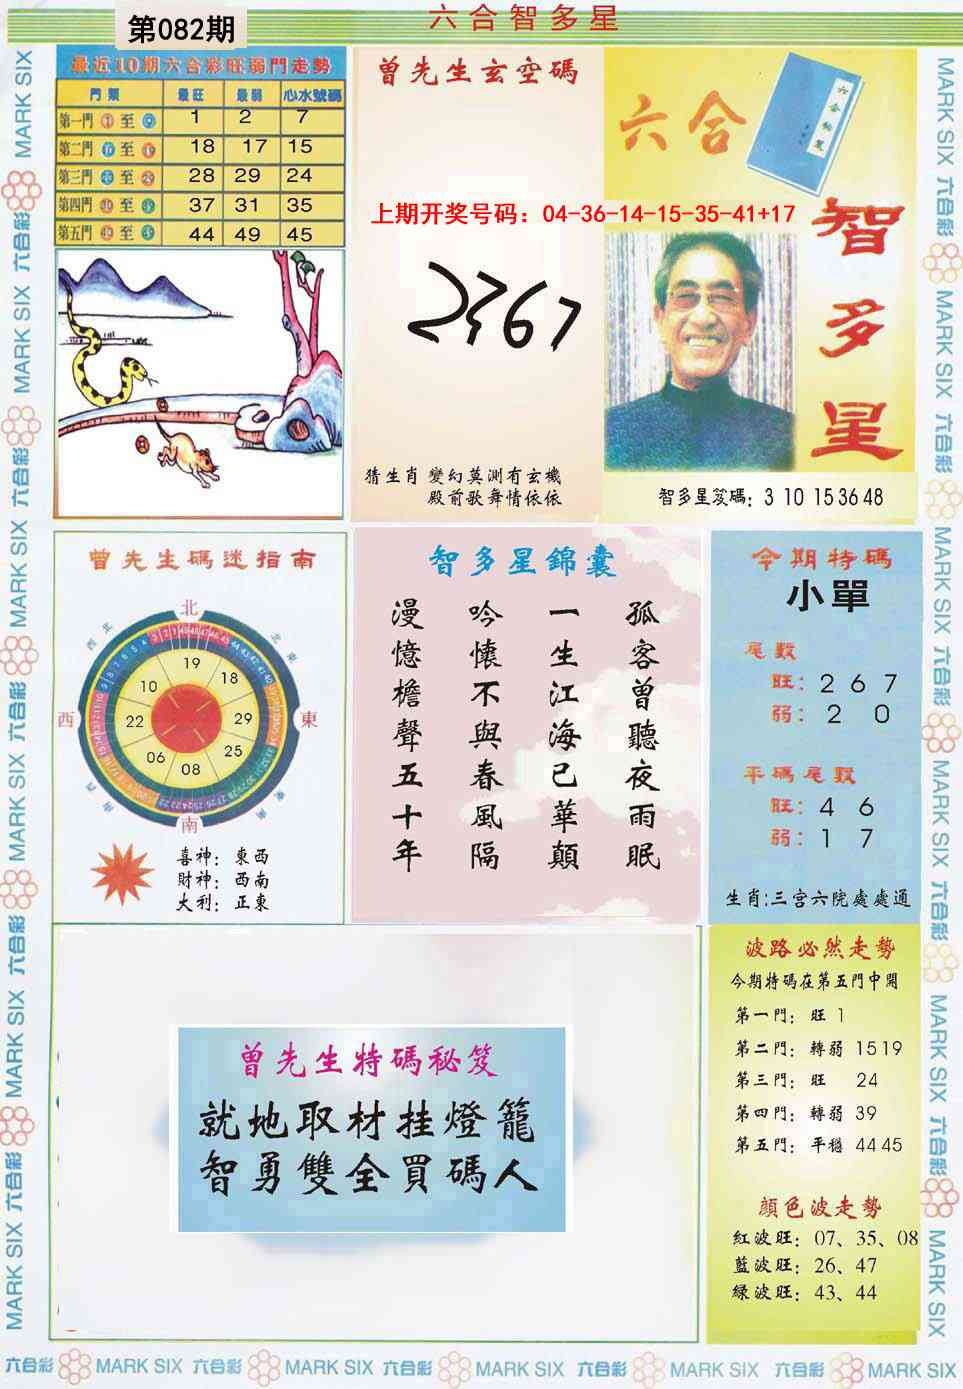 六合智多星
第082期
最近10期六合彩旺弱門走勢
門類 最旺 最弱 心水號碼
第一門 至 1 2 7
第二門 至 18 17 15
第三門 至 28 29 24
第四門 至 37 31 35
第五門 至 44 49 45
曾先生玄空碼
上期开奖号码：04-36-14-15-35-41+17
2367
猜生肖 變幻莫測有玄機
殿前歌舞情依依
六合
智多星
智多星笈碼: 3 10 15 36 48
曾先生碼迷指南
北
西
東
南
19
18
29
25
08
06
22
10
喜神: 東西
財神: 西南
大利: 正東
智多星錦囊
孤客曾聽夜雨眠
一生江海已華顛
吟懷不與春風隔
漫憶檐聲五十年
今期特碼
小單
尾數
旺: 2 6 7
弱: 2 0
平碼尾數
旺: 4 6
弱: 1 7
生肖:三宫六院處處通
曾先生特碼秘笈
就地取材挂燈籠
智勇雙全買碼人
波路必然走勢
今期特碼在第五門中開
第一門: 旺 1
第二門: 轉弱 15 19
第三門: 旺 24
第四門: 轉弱 39
第五門: 平穩 44 45
顔色波走勢
紅波旺: 07、35、08
藍波旺: 26、47
綠波旺: 43、44
六合彩 MARK SIX 六合彩 MARK SIX 六合彩 MARK SIX 六合彩 MARK SIX 六合彩 MARK SIX